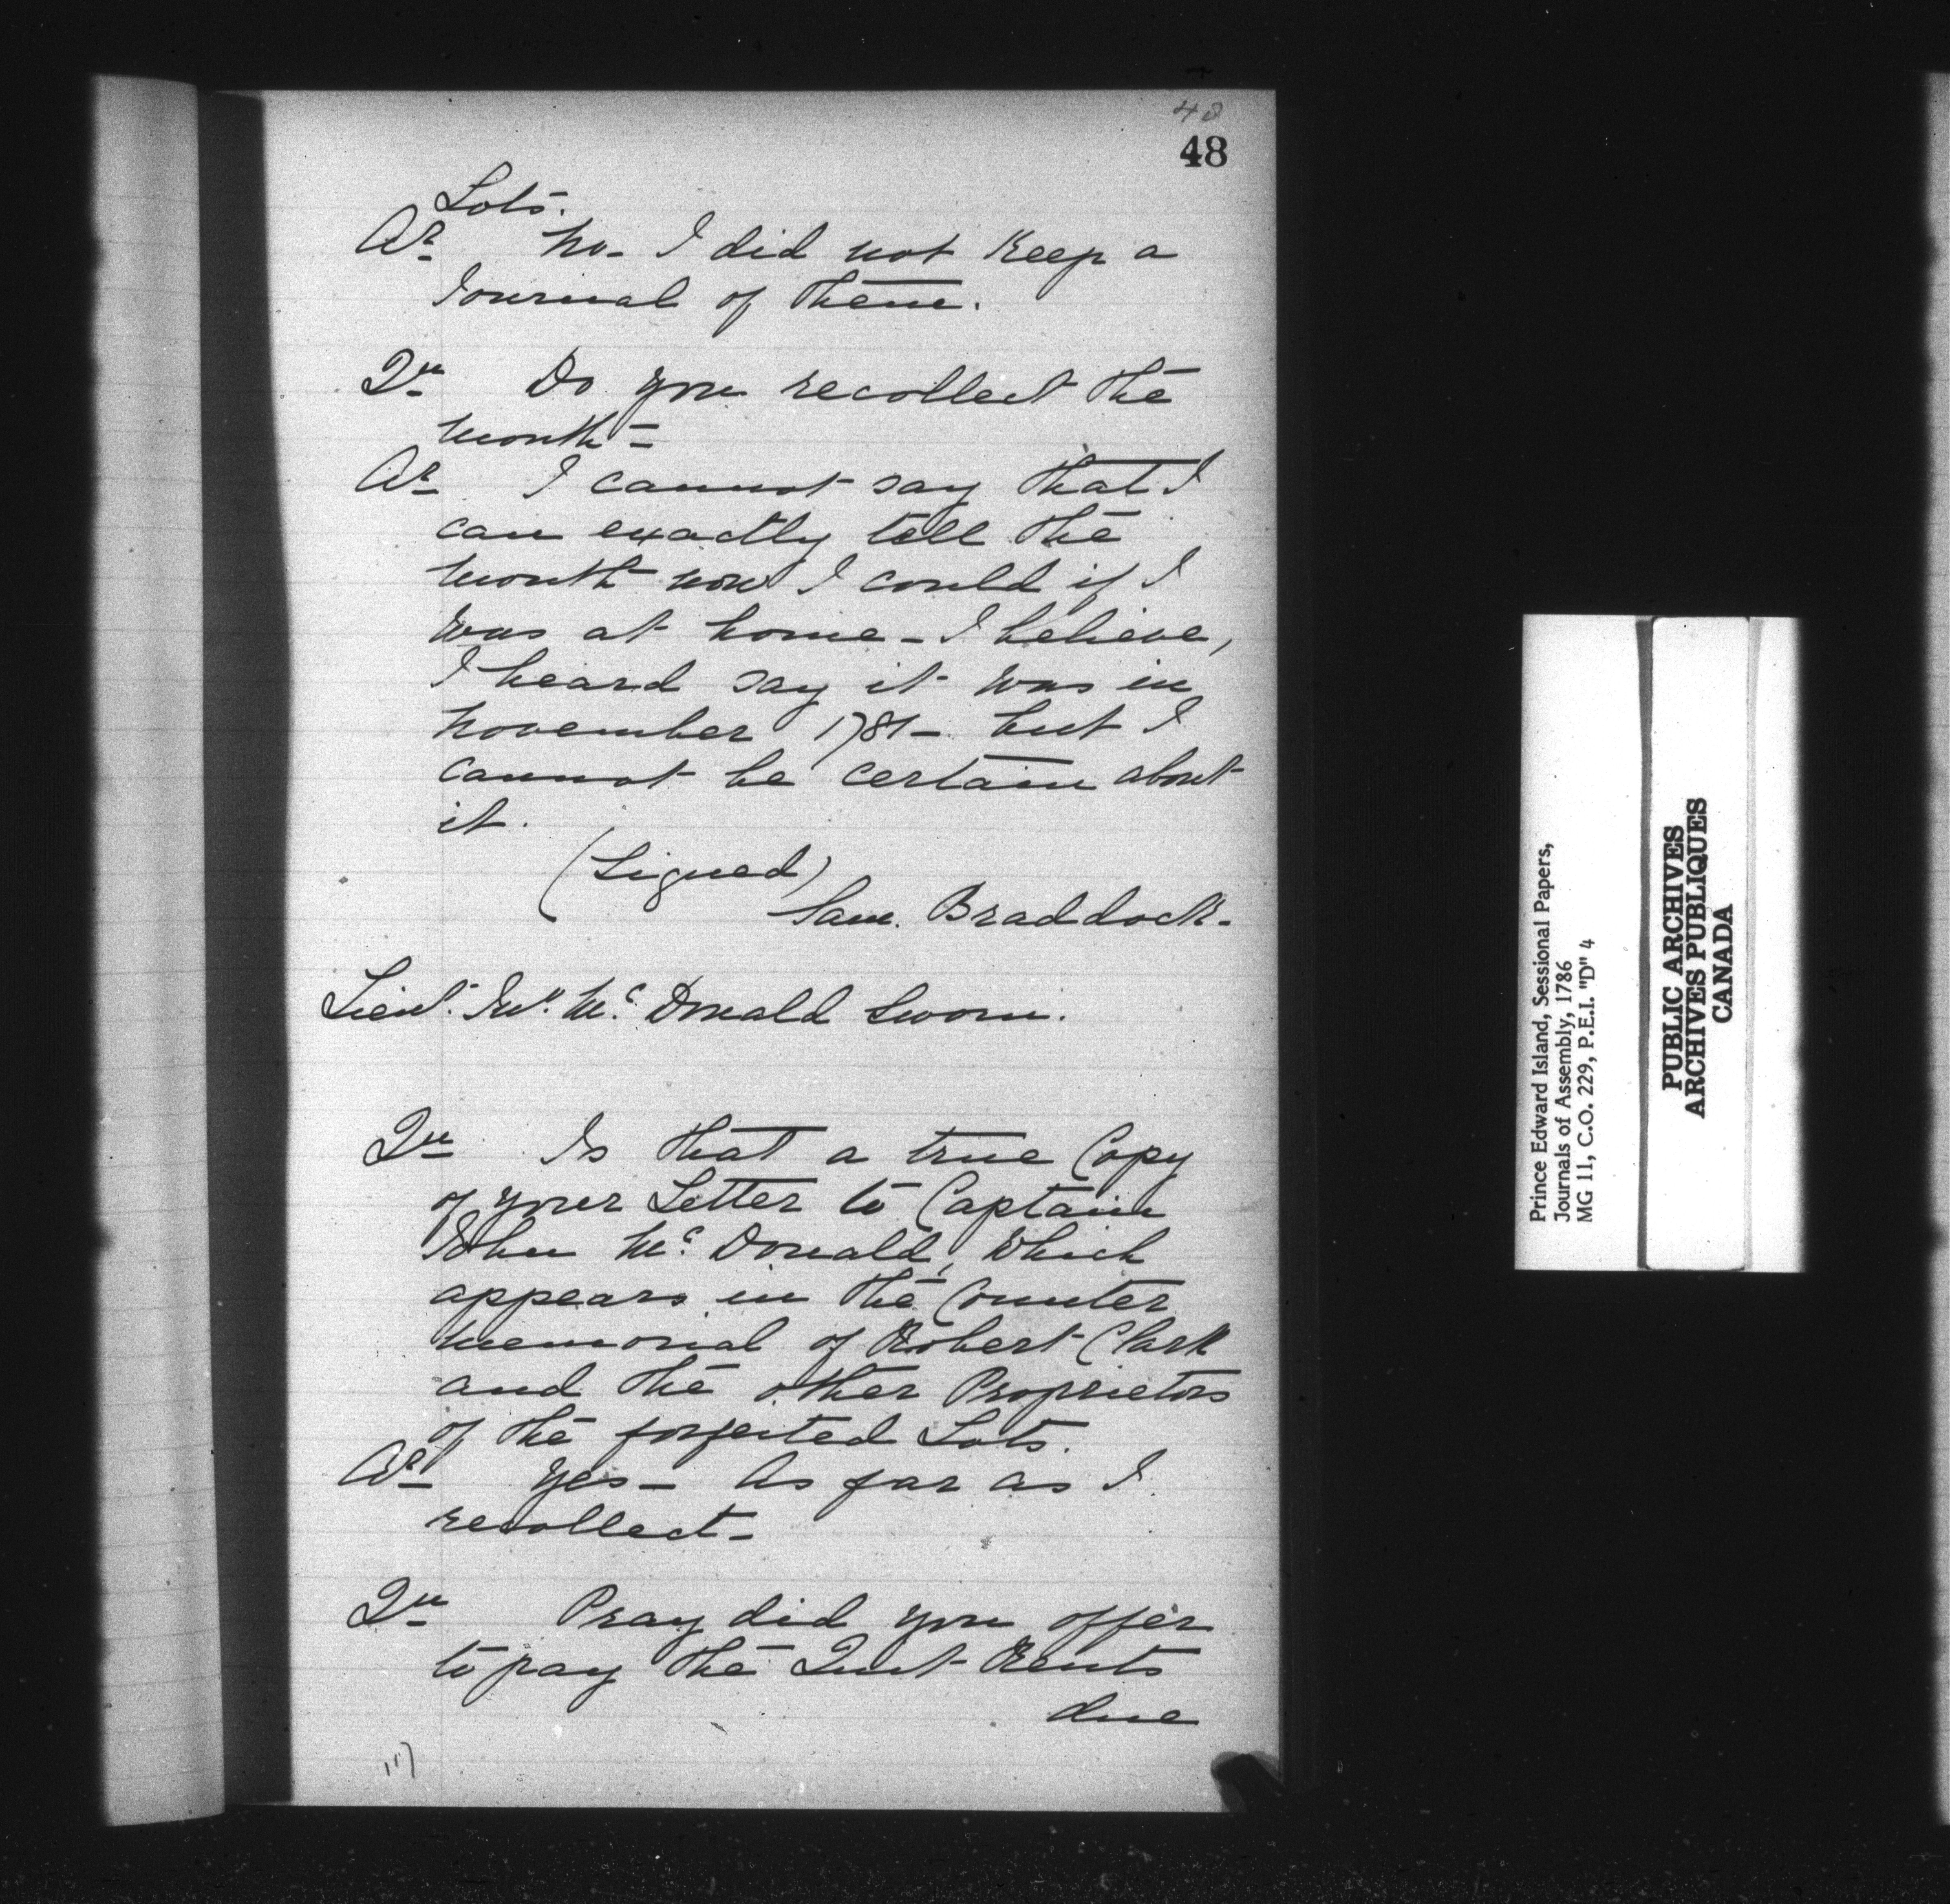 48
48
Lots.
Ar. No - I did not Keep a
Journal of them.
Qu. Do you recollect the
month -
Ar. I cannot say that I
can exactly tell the
month now I could if I
was at home - I believe,
I heard say it was in
November 1781 - but I
cannot be certain about
it.
(Signed)
Sam. Braddock.
Lieut. Jno. Mc. Donald Sworn.
Qu. Is that a true Copy
of your Letter to Captain
John Mc. Donald, which
appears in the Counter
memorial of Robert Clark
and the other Proprietors
of the forfeited Lots.
Ar. Yes - As far as I
recollect -
Qu. Pray did you offer
to pay the Quit Rents
due
Prince Edward Island, Sessional Papers,
Journals of Assembly, 1786
MG 11, C.O. 229, P.E.I. "D" 4
PUBLIC ARCHIVES
ARCHIVES PUBLIQUES
CANADA